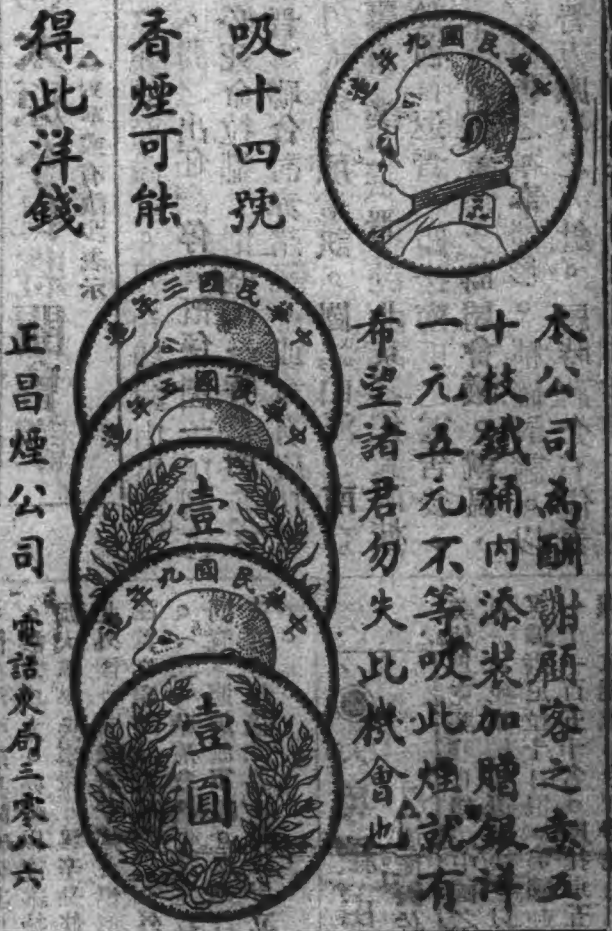 中華民國九年造
吸十四號
香煙可能
得此洋錢
本公司為酬謝顧客之意五
十枝鐵桶内添裝加贈銀洋
一元五元不等吸此煙就有
希望諸君勿失此機會也
中華民國三年造
中華民國五年造
壹
中華民國九年造
壹圓
正昌煙公司 電話東局三零八六